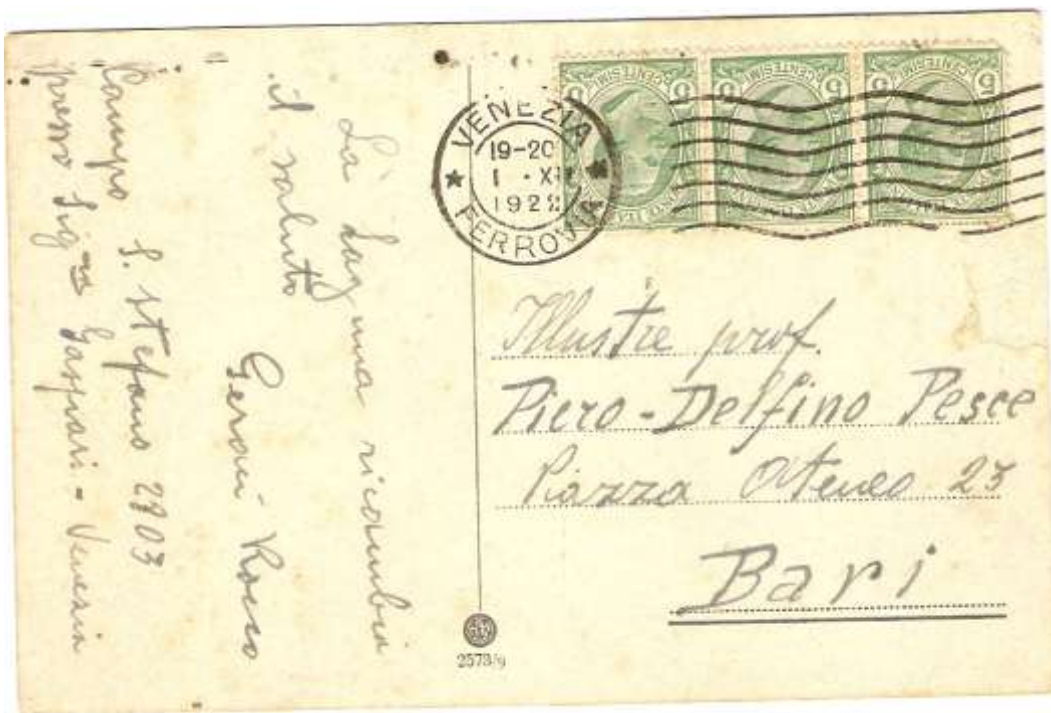 La Laguna ricambia
il saluto
Geraci Rocco
Campo S. Stefano 2803
presso Sig.ra Gaspari - Venezia
VENEZIA
19-20
1922
FERROVIA
5 CENTESIMI 5
5 CENTESIMI 5
5 CENTESIMI 5
Illustre prof.
Piero-Delfino Pesce
Piazza Ateneo 23
Bari
2573/9